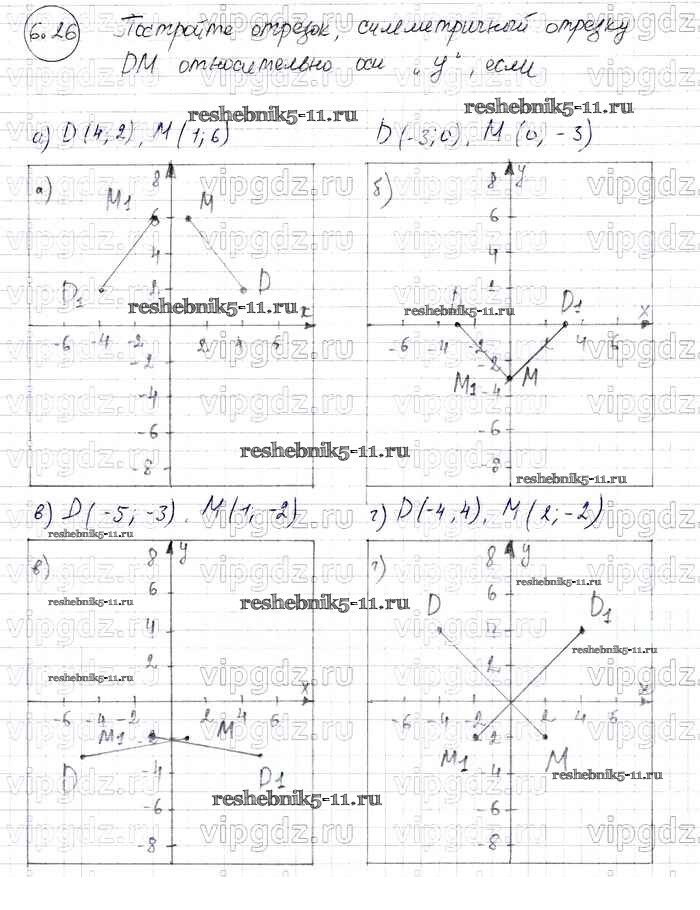 6.26 Постройте отрезок, симметричной отрезку
DM относительно оси "у", если
reshebnik5-11.ru reshebnik5-11.ru
а) D(4,2), M(1;6) D(-3;0), M(0,-3)
а) 8 б) 8 y
M1 6 M 6
4 4
D1 2 D 2
reshebnik5-11.ru reshebnik5-11.ru D1
x x
-6 -4 -2 2 4 6 -6 -4 -2 2 4 6
-2 -2
M1 M
-4 -4
-6 -6
reshebnik5-11.ru
-8 -8
reshebnik5-11.ru
в) D(-5;-3), M(1,-2) г) D(-4,4), M(2;-2)
reshebnik5-11.ru
в) 8 y г) 8 y
reshebnik5-11.ru
6 6
reshebnik5-11.ru reshebnik5-11.ru D D1
4
reshebnik5-11.ru
2 2
reshebnik5-11.ru
x x
-6 -4 -2 2 4 6 -6 -4 -2 2 4 6
M1 -2 M -2
D -4 D1 M1 -4 M
reshebnik5-11.ru
reshebnik5-11.ru
-6 -6
-8 -8
vipgdz.ru vipgdz.ru vipgdz.ru vipgdz.ru